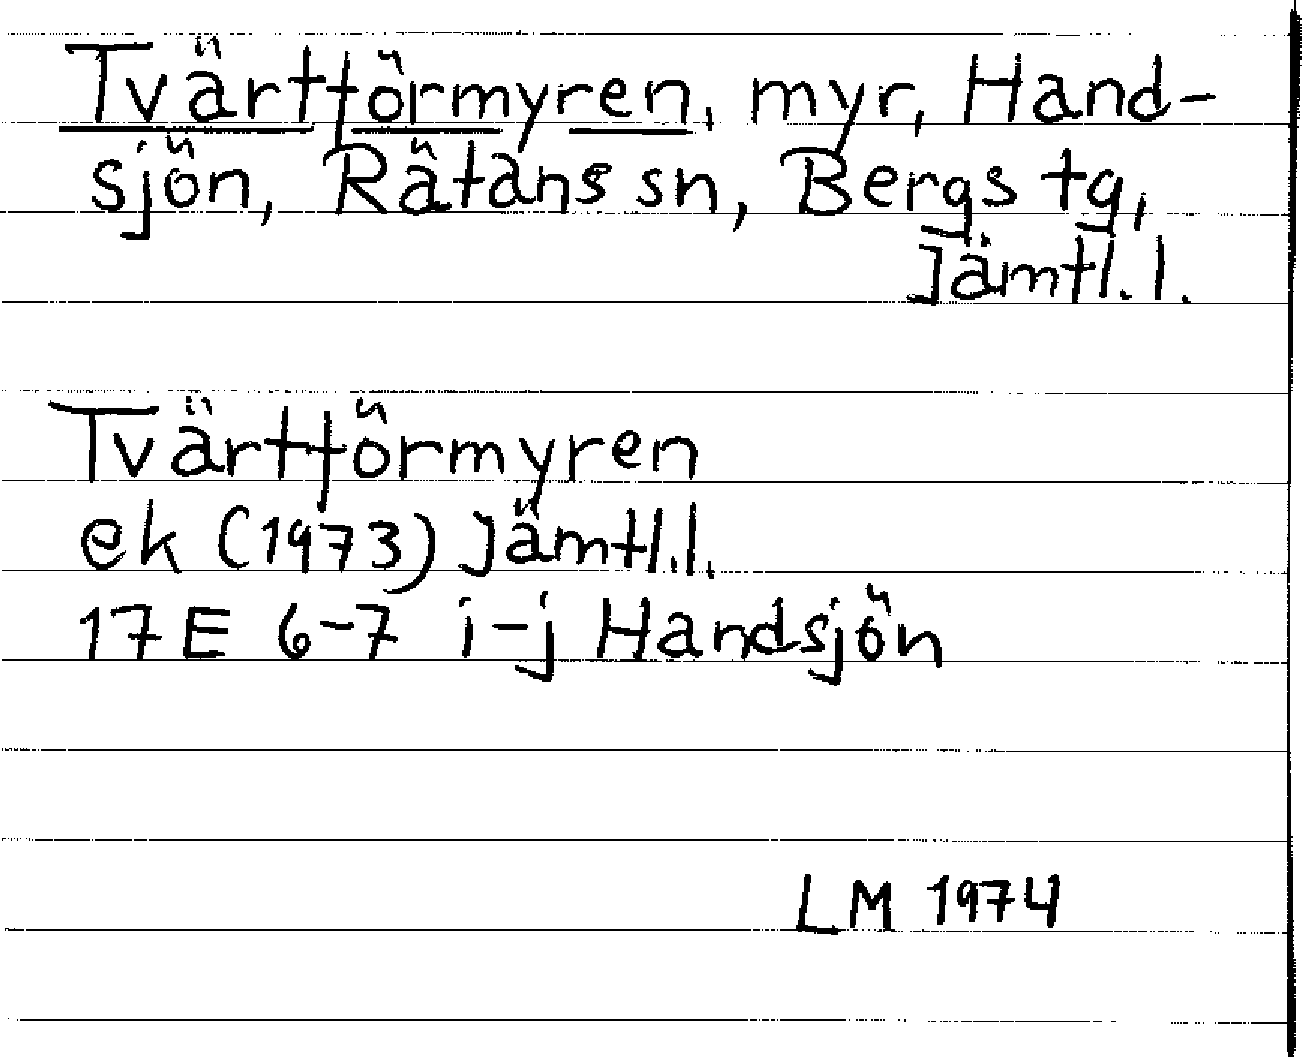 Tvärtförmyren, myr, Hand-
sjön, Rätans sn, Bergs tg,
Jämtl. l.
Tvärtförmyren
ek (1973) Jämtl.l.
17E 6-7 i-j Handsjön
LM 1974